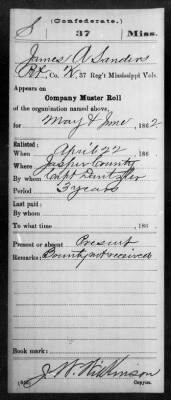 (Confederate.)
S 37 Miss.
James A Sanders
Pvt, Co. K, 37 Reg't Mississippi Vols.
Appears on
Company Muster Roll
of the organization named above,
for May & June, 1862.
Enlisted:
When April 22, 186 .
Where Jasper County
By whom Capt
Period 3 years
Last paid:
By whom
To what time , 186 .
Present or absent Present
Remarks: Bounty not received
Book mark:
J. W. Wilkinson
Copyist.